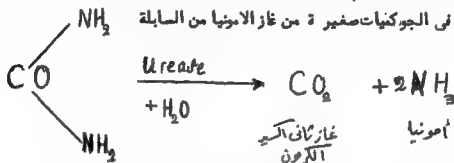 فى الجو كميات صغيرة من غاز الامونيا من السابلة
NH₂
CO
Urease
+H₂O
CO₂
+ 2NH₃
NH₂
غاز ثانى اكسيد
الكربون
أمونيا